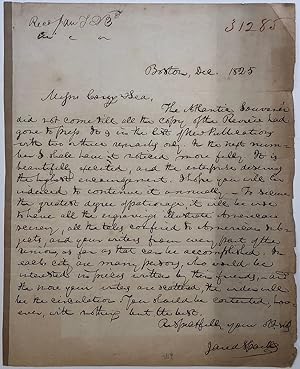 31285
Boston, Dec. 1825
Messrs Carey & Lea,
The Atlantic Souvenir
did not come till all the copy of the Review had
gone to press. It is in the List of New Publications
with two other remarks only. In the next num-
ber I shall have it noticed more fully. It is
beautifully executed, and the enterprise deserves
the highest encouragement. I hope you will be
induced to continue it annually. To secure
the greatest degree of patronage it will be wise
to have all the engravings illustrate American
scenery, all the tales confined to American sub-
jects, and your writers from every part of the
union, as far as that can be accomplished. In
each city are many persons, who would be
interested in pieces written by their friends, and
the more your writers are scattered, the wider will
be the circulation. You should be contented, how-
ever, with nothing but the best.
Respectfully your
Jared Sparks